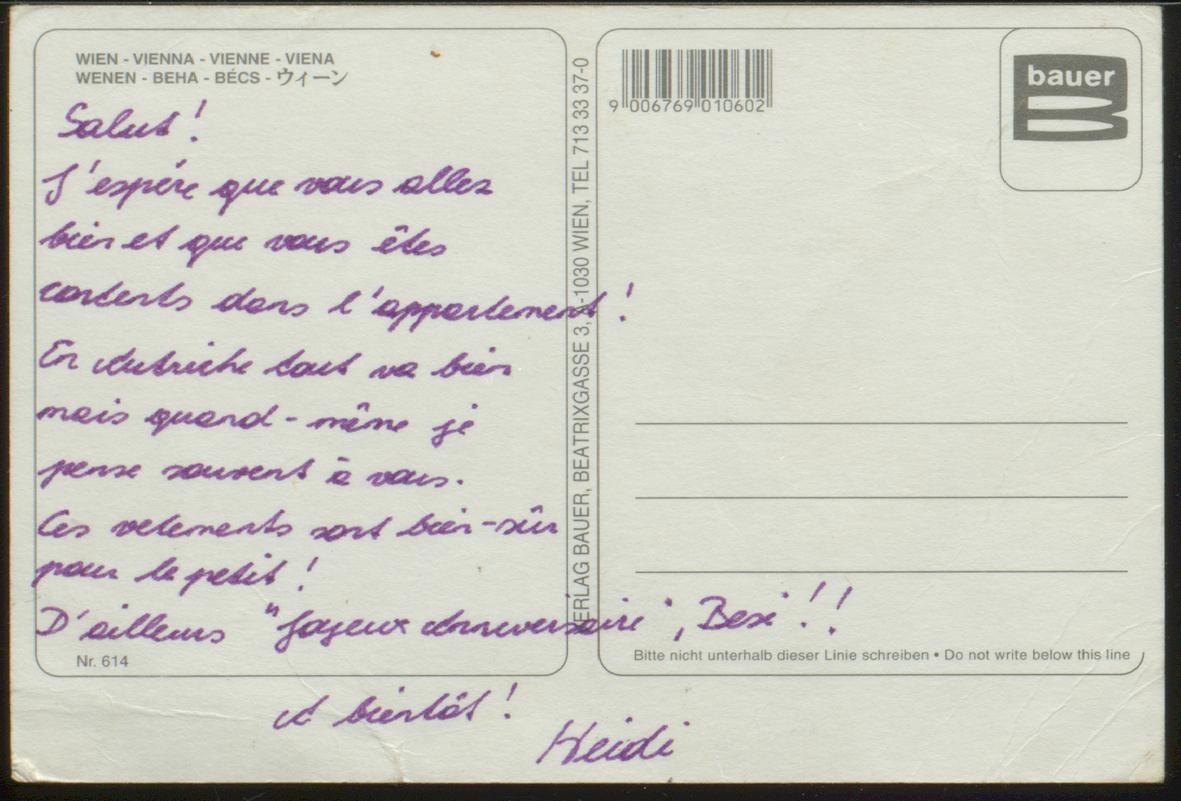 WIEN - VIENNA - VIENNE - VIENA
WENEN - BEHA - BÉCS - ウィーン
Salut !
J'espère que vous allez
bien et que vous êtes
contents dans l'appartement !
En Autriche tout va bien
mais quand-même je
pense souvent à vous.
Ces vetements sont bien-sûr
pour le petit !
D'ailleurs "Joyeux Anniversaire", !!
Nr. 614
A bientôt !
Heidi
VERLAG BAUER, BEATRIXGASSE 3, A-1030 WIEN, TEL 713 33 37-0
9 006769 010602
bauer
Bitte nicht unterhalb dieser Linie schreiben • Do not write below this line